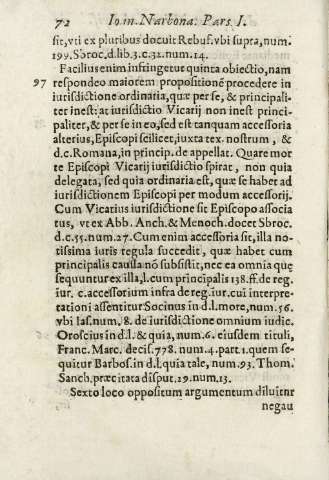 72 Io. in. Narbona. Pars. I.
sit, vti ex pluribus docuit Rebuf. vbi supra, num.
199. Sbroc. d. lib. 3. c. 32. num. 14.
Facilius enim infringetur quinta obiectio, nam
97 respondeo maiorem propositionē procedere in
iurisdictione ordinaria, quæ per se, & principali-
ter inest: at iurisdictio Vicarij non inest princi-
paliter, & per se in eo, sed est tanquam accessoria
alterius, Episcopi scilicet, iuxta tex. nostrum, &
d. c. Romana, in princip. de appellat. Quare mor
te Episcopi Vicarij iurisdictio spirat, non quia
delegata, sed quia ordinaria est, quæ se habet ad
iurisdictionem Episcopi per modum accessorij.
Cum Vicarius iurisdictione sit Episcopo associa
tus, vt ex Abb. Anch. & Menoch. docet Sbroc.
d. c. 55. num. 27. Cum enim accessoria sit, illa no-
tissima iuris regula succedit, quæ habet cum
principalis causa nō subsistit, nec ea omnia que
sequuntur ex illa, l. cum principalis 138. ff. de reg.
iur. c. accessorium infra de reg. iur. cui interpre-
tationi assentitur Socinus in d. l. more, num. 56.
vbi Ias. num. 8. de iurisdictione omnium iudic.
Oroscius in d. l. & quia, num. 6. eiusdem tituli,
Franc. Marc. decis. 778. num. 4. part. 1. quem se-
quitur Barbos. in d. l. quia tale, num. 93. Thom.
Sanch. præcitata disput. 29. num. 13.
Sexto loco oppositum argumentum diluitnr
negau